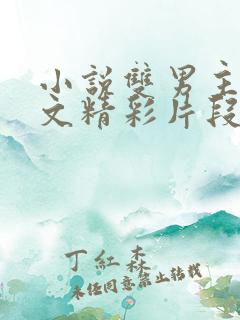 小説雙男主
文精彩片段
丁紅森
未经同意禁止转载